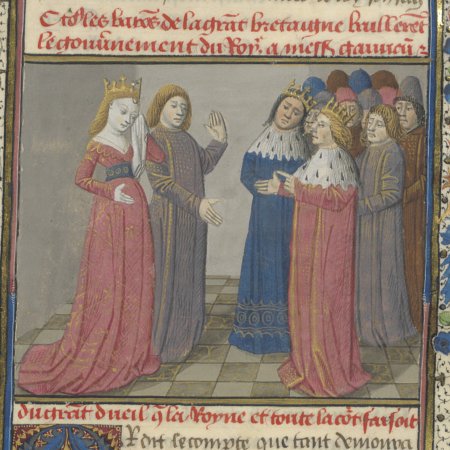 Et to les barōs de la grāt bretaigne baillerēt
le gouuernement du Roy a mess gauuain
du grant dueil q̄ la Royne et toute la co͛t faisoit
Or dit le compte que tant demoura